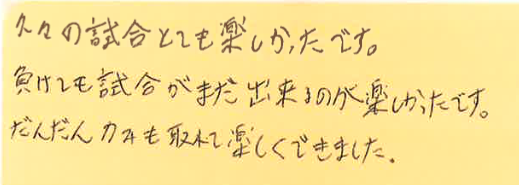 久々の試合とても楽しかったです。
負けても試合がまだ出来るのが楽しかったです。
だんだん力みも取れて楽しくできました.